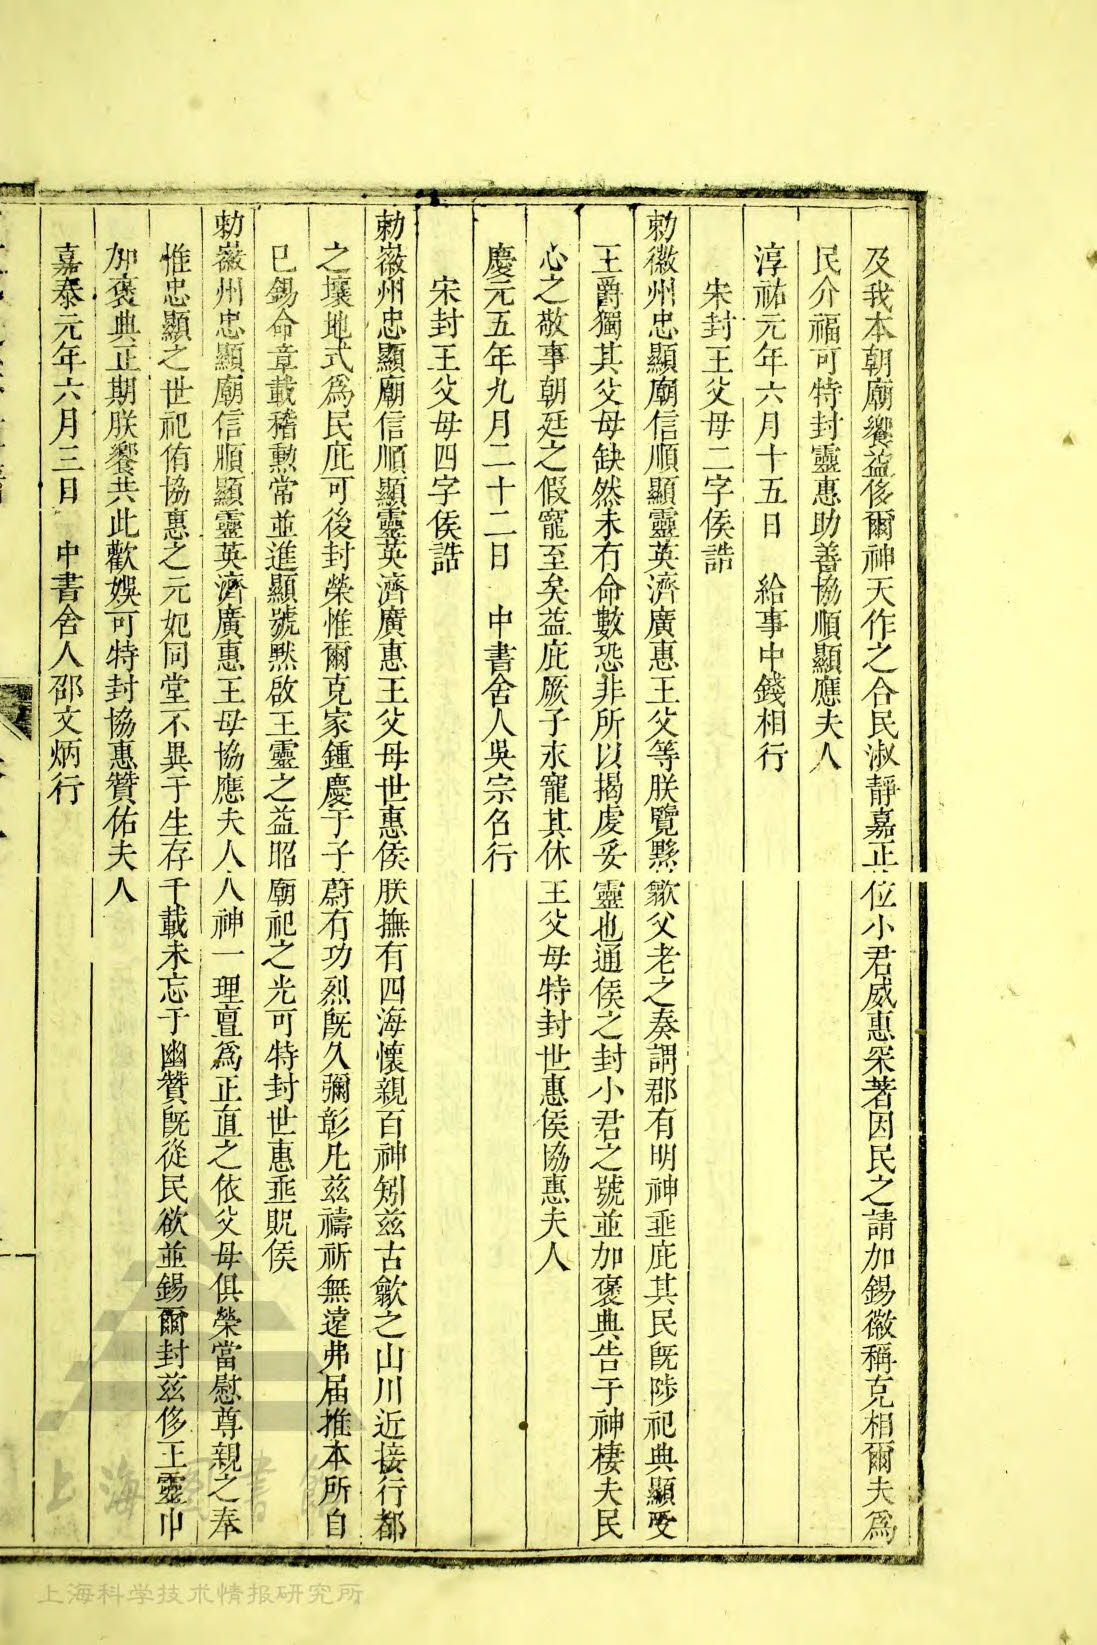 及我本朝廟饗益侈爾神天作之合民淑靜嘉正位小君威惠采著因民之請加錫徽稱克相爾夫爲
民介福可特封靈惠助善協順顯應夫人
淳祐元年六月十五日　給事中錢相行
宋封王父母二字侯誥
勅徽州忠顯廟信順顯靈英濟廣惠王父等朕覽黟歙父老之奏謂郡有明神垂庇其民既陟祀典顯受
王爵獨其父母缺然未有命數恐非所以揭虔妥靈也通侯之封小君之號並加褒典告于神棲夫民
心之敬事朝廷之假寵至矣益庇厥子永寵其休王父母特封世惠侯協惠夫人
慶元五年九月二十二日　中書舍人吳宗名行
宋封王父母四字侯誥
勅徽州忠顯廟信順顯靈英濟廣惠王父母世惠侯朕撫有四海懷親百神矧兹古歙之山川近接行都
之壤地式爲民庇可後封榮惟爾克家鍾慶于子蔚有功烈既久彌彰凡兹禱祈無遠弗届推本所自
已錫命章載稽勲常並進顯號黙啟王靈之益昭廟祀之光可特封世惠垂貺侯
勅徽州忠顯廟信順顯靈英濟廣惠王母協應夫人人神一理亶爲正直之依父母俱榮當慰尊親之奉
惟忠顯之世祀侑協惠之元妃同堂不異于生存千載未忘于幽贊既從民欲並錫爾封兹侈王靈
加褒典正期朕饗共此歡娛可特封協惠贊佑夫人
嘉泰元年六月三日　中書舍人邵文炳行
上海圖書館
上海科学技术情报研究所